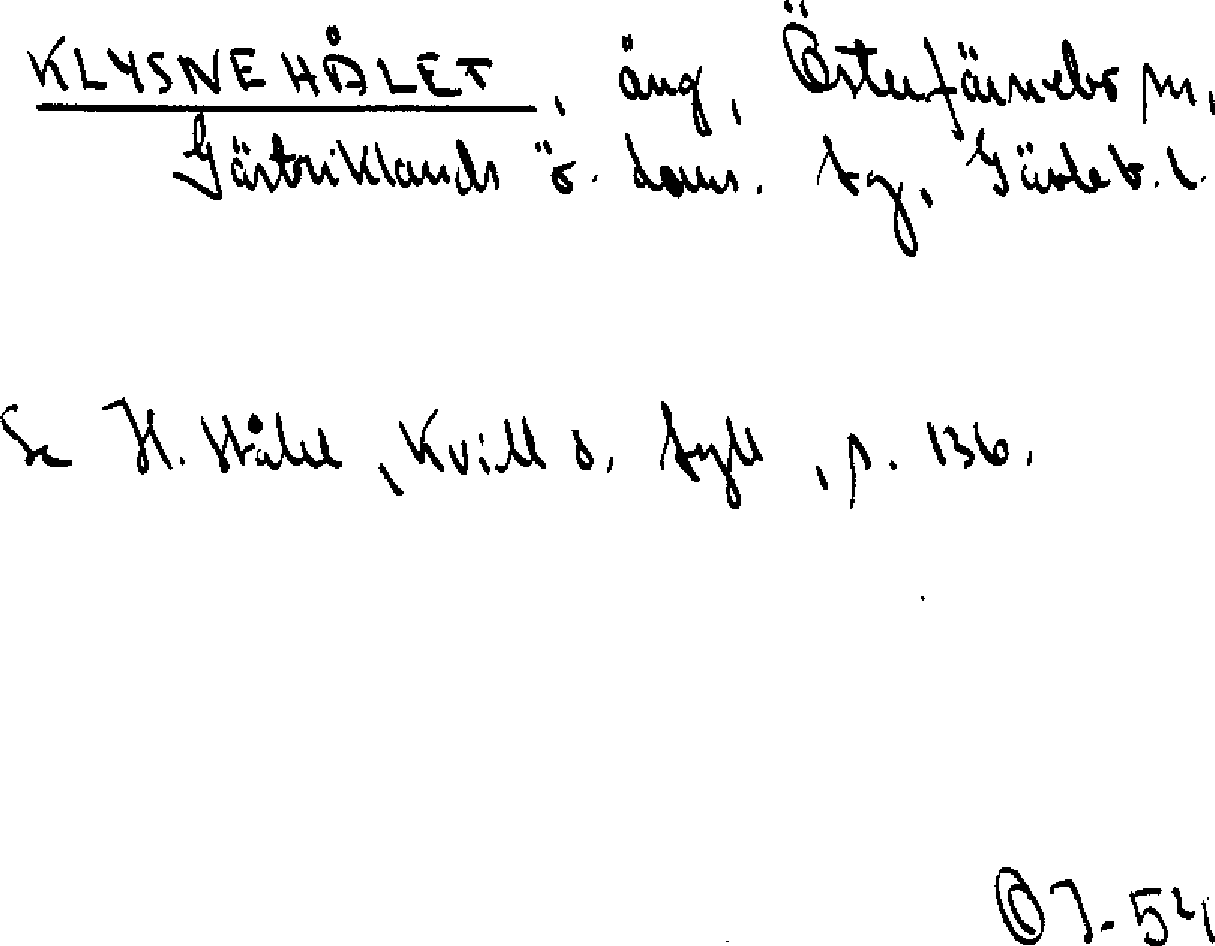 KLYSNEHÅLET, äng, Österfärnebo sn,
Gästriklands ö. doms. tg, Gävleb. l.
Se H. Ståhl, Kvill o. tyll, s. 136.